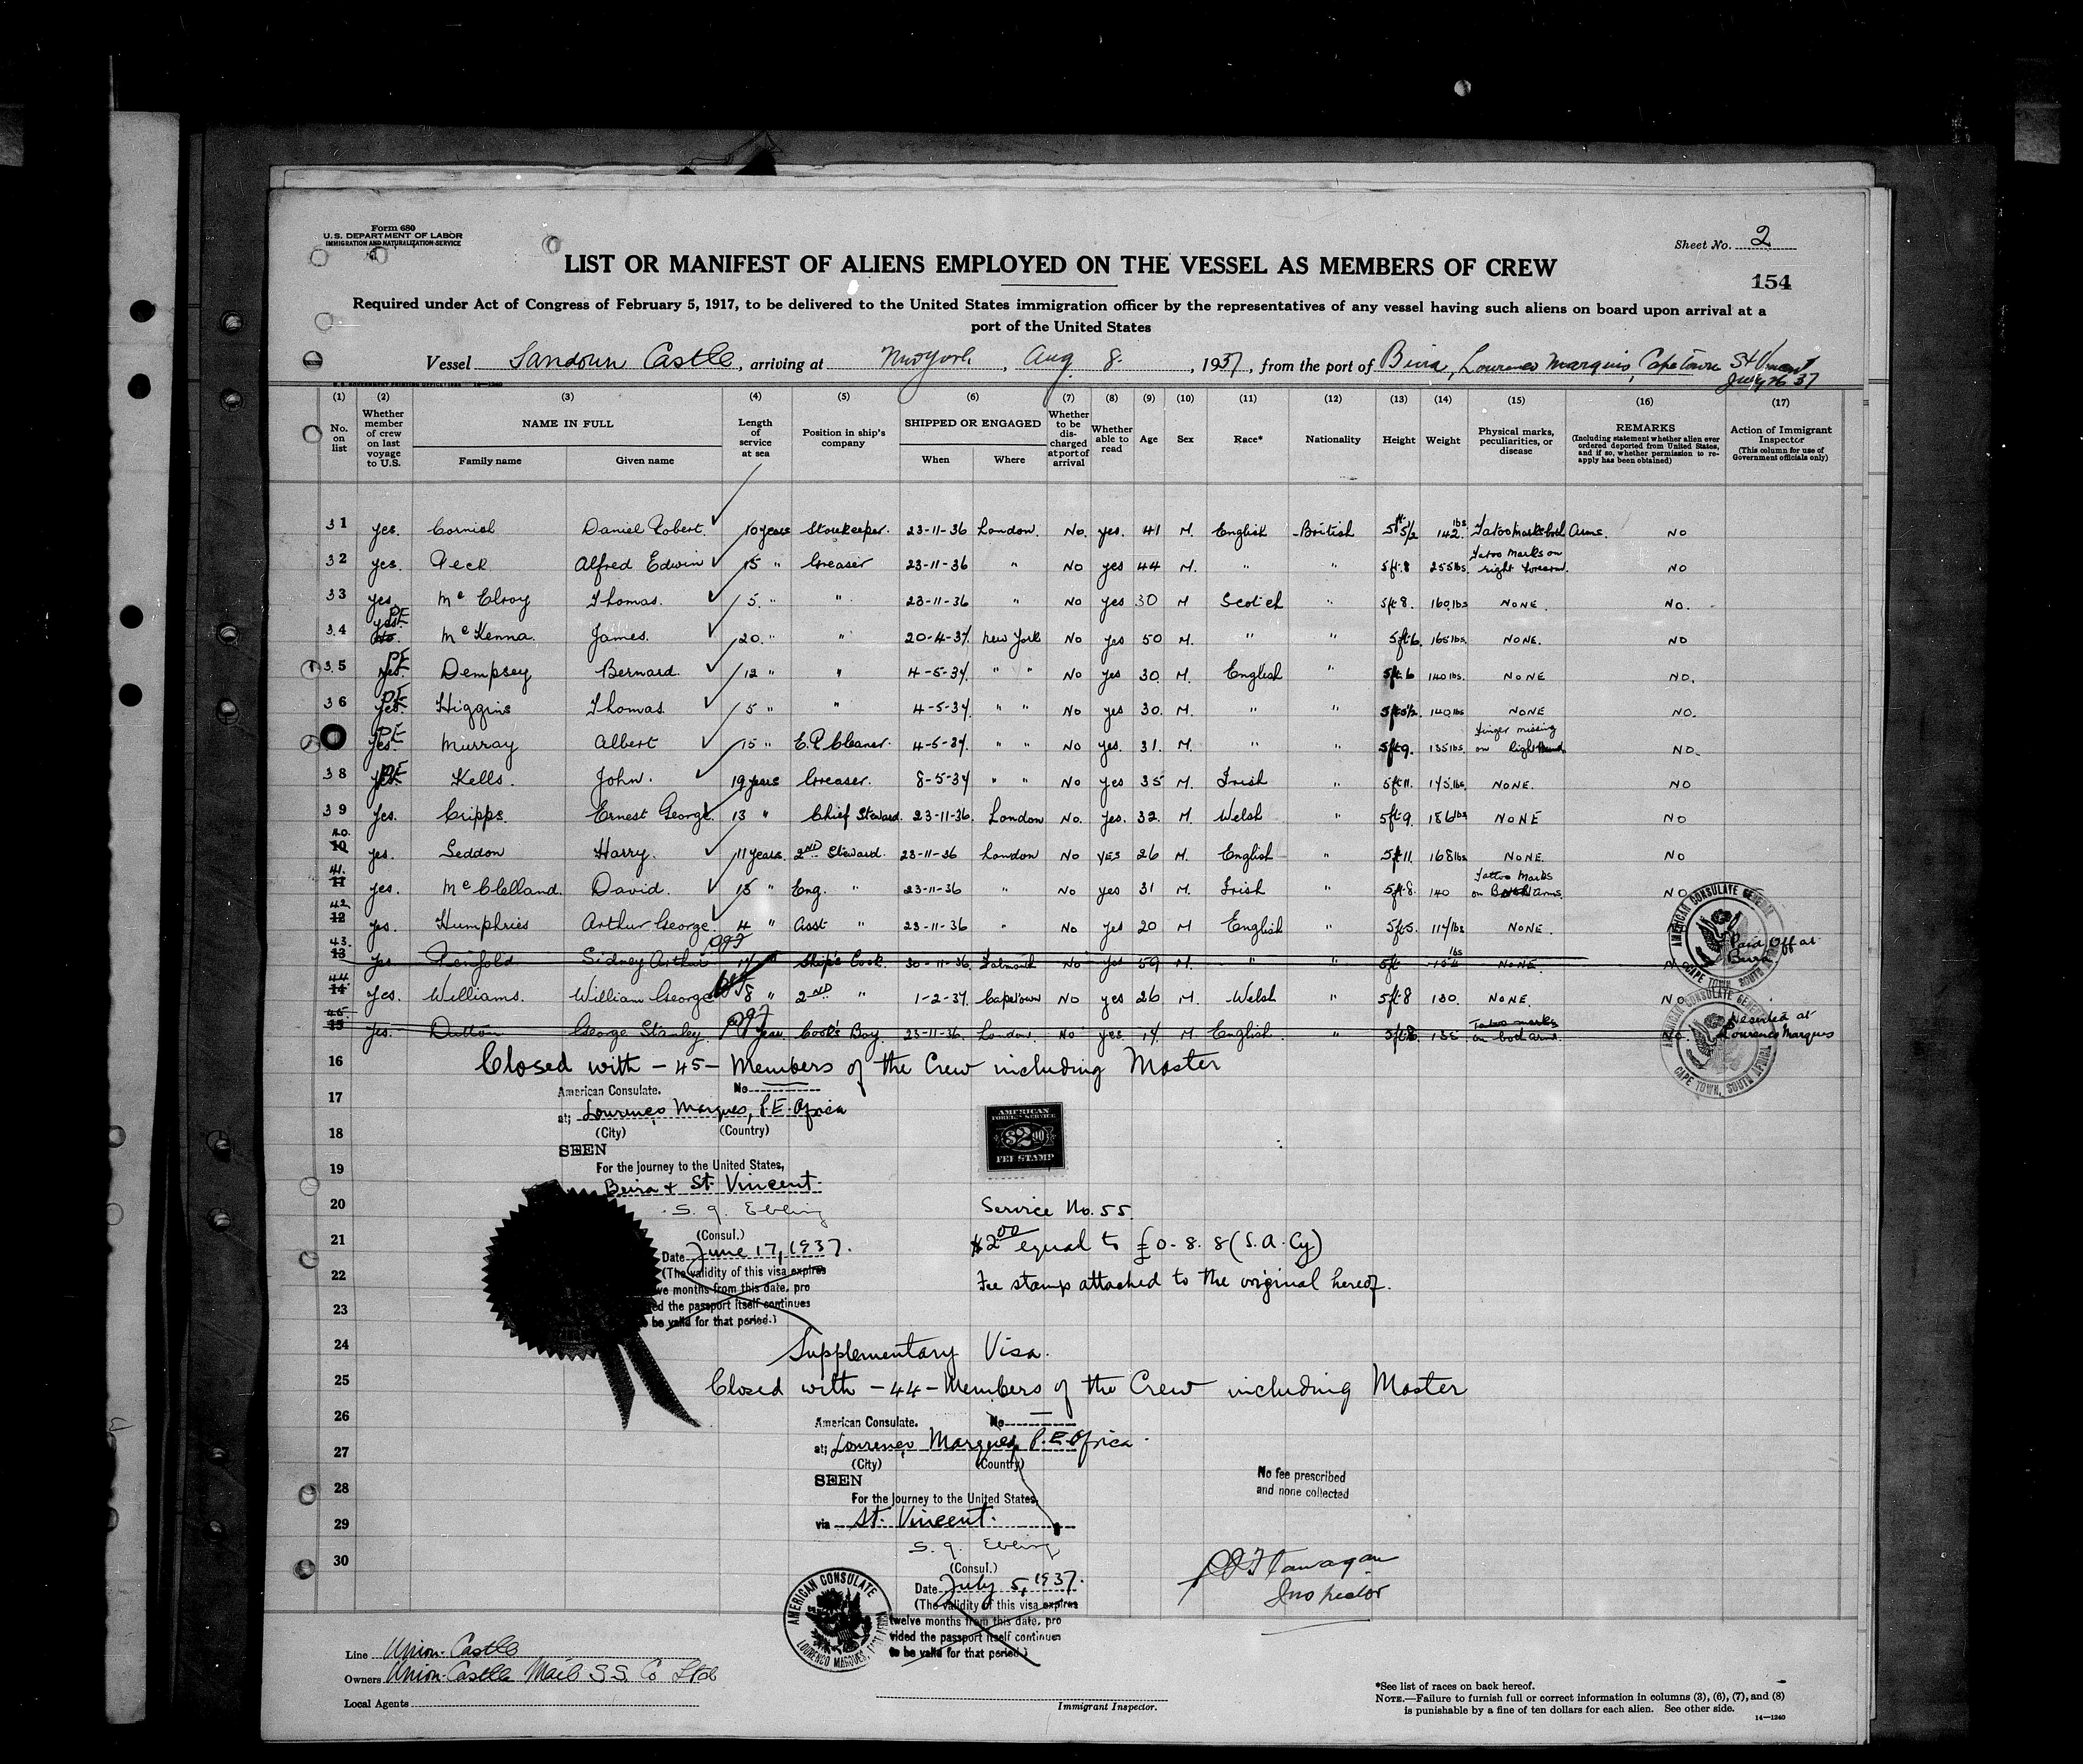 Form 680
U.S. DEPARTMENT OF LABOR
IMMIGRATION AND NATURALIZATION SERVICE
Sheet No. 2
LIST OR MANIFEST OF ALIENS EMPLOYED ON THE VESSEL AS MEMBERS OF CREW
154
Required under Act of Congress of February 5, 1917, to be delivered to the United States immigration officer by the representatives of any vessel having such aliens on board upon arrival at a
port of the United States
Vessel Sandown Castle, arriving at New York, Aug 8, 1937, from the port of Beira, Lourenco Marquis, Capetown St Vincent
July 26 37
(1) (2) (3) (4) (5) (6) (7) (8) (9) (10) (11) (12) (13) (14) (15) (16) (17)
No. on list
Whether member of crew on last voyage to U.S.
NAME IN FULL
Family name
Given name
Length of service at sea
Position in ship's company
SHIPPED OR ENGAGED
When
Where
Whether to be discharged at port of arrival
Whether able to read
Age
Sex
Race*
Nationality
Height
Weight
Physical marks, peculiarities, or disease
REMARKS
(Including statement whether alien ever ordered deported from United States, and if so, whether permission to re-apply has been obtained)
Action of Immigrant Inspector
(This column for use of Government officials only)
31 yes. Cornish Daniel Robert. 10 years Storekeeper. 23-11-36 London. No. yes. 41 M. English British 5ft 5½ 142 lbs Tatoo marks both Arms. NO
32 yes. Peck Alfred Edwin 15 " Greaser 23-11-36 " NO yes 44 M. " " 5ft.8 255lbs. Tatoo Marks on right forearm. NO
33 yes Mc Elroy Thomas. 5. " " 23-11-36 " No yes 30 M Scotch " 5ft8. 160lbs NONE. NO.
34 yes McKenna. James. 20. " " 20-4-37. New York No yes 50 M. " " 5ft6. 165lbs. NONE. NO
35 yes. Dempsey Bernard. 12 " " 4-5-37. " " No yes 30. M. English " 5ft6 140lbs. NONE NO.
36 yes. Higgins Thomas. 5 " " 4-5-37. " " No yes 30. M. " " 5ft5½. 140lbs NONE NO.
yes. Murray Albert 15 " E.R. Cleaner. 4-5-37. " " No yes. 31. M. " " 5ft9. 135lbs. finger missing on Right Hand NO.
38 yes. Kells. John. 19 years Greaser. 8-5-37 " " No yes 35 M. Irish " 5ft11. 145lbs. NONE. NO
39 yes. Cripps. Ernest George. 13 " Chief Steward. 23-11-36. London No. yes. 32. M. Welsh " 5ft9. 186lbs NONE NO
40. 10 yes. Seddon Harry. 11 years. 2ND Steward. 23-11-36 London No YES 26 M. English " 5ft11. 168lbs. NONE. NO
41. 11 yes. Mc Clelland. David. 15 " Eng. " 23-11-36 " No yes 31 M. Irish " 5ft8. 140 Tattoo Marks on Both Arms. NO
42 12 yes. Humphries Arthur George. 4 " Asst " 23-11-36 " No yes 20 M English " 5ft5. 114lbs NONE. NO
43. 13 yes Penfold Sidney Arthur " Ship's Cook. 30-11-36. Falmouth No yes 59 M. " " 5ft lbs NONE. No Paid Off at Beira
44 14 yes. Williams. William George 8 " 2ND " 1-2-37. Capetown NO yes 26 M. Welsh " 5ft8 130. NONE. NO
45. 15 yes. Dutton George Stanley. 1 year Cook's Boy. 23-11-36. London. No yes. 17. M English " 5ft8. 135 Tatoo marks on both arms. No. Deserted at Lourenco Marques
AMERICAN CONSULATE GENERAL CAPE TOWN, SOUTH AFRICA
AMERICAN CONSULATE GENERAL CAPE TOWN, SOUTH AFRICA
16 Closed with - 45 - Members of the Crew including Master
American Consulate. No
17 at; Lourenco Marques, P.E. Africa
(City) (Country)
AMERICAN FOREIGN SERVICE $2.00 FEE STAMP
18
SEEN
19 For the journey to the United States,
Beira + St. Vincent.
20 S. J. Ebling
Service No. 55.
(Consul.)
21 Date June 17, 1937.
$2.00 equal to £0-8.8 (S.A. Cy)
22 (The validity of this visa expires
twelve months from this date, pro
Fee stamps attached to the original hereof.
23 vided the passport itself continues
to be valid for that period.)
24 Supplementary Visa.
25 Closed with - 44 - Members of the Crew including Master
26 American Consulate. No
27 at; Lourenco Marques, P.E. Africa.
(City) (Country)
SEEN
No fee prescribed
28 and none collected
For the journey to the United States,
29 via St. Vincent.
S. J. Ebling
30 (Consul.)
Date July 5, 1937.
(The validity of this visa expires
twelve months from this date, pro
vided the passport itself continues
to be valid for that period.)
Flanagan
Inspector
AMERICAN CONSULATE
LOURENCO MARQUES, EAST AFRICA
Line Union-Castle
Owners Union-Castle Mail S.S. Co Ltd
Local Agents
Immigrant Inspector.
*See list of races on back hereof.
NOTE.—Failure to furnish full or correct information in columns (3), (6), (7), and (8)
is punishable by a fine of ten dollars for each alien. See other side.
14—1240